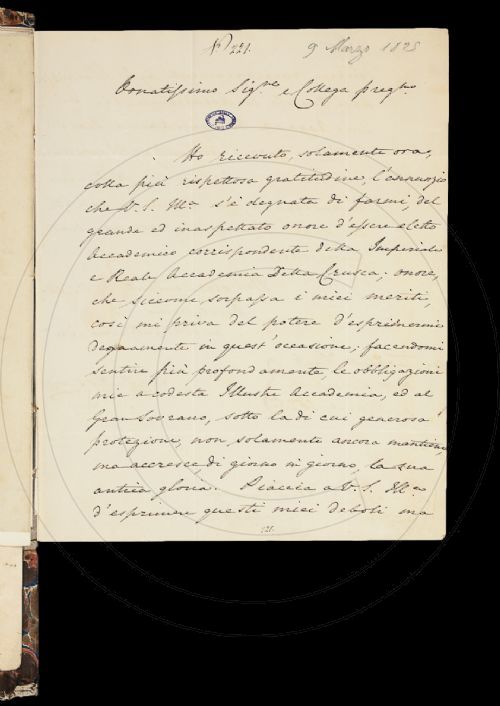 N 221.
9 Marzo 1825
Ornatissimo Sig.re e Collega preg.mo
Ho ricevuto, solamente ora,
colla più rispettosa gratitudine, l'annunzio
che V. S. Ill.ma s'è degnata di farmi, del
grande ed inaspettato onore d'essere eletto
Accademico corrispondente della Imperiale
e Reale Accademia Della Crusca; onore,
che siccome sorpassa i miei meriti,
così mi priva del potere d'esprimermi
degnamente in quest'occasione; facendomi
sentire più profondamente, le obbligazioni
mie a codesta Illustre Accademia, ed al
Gran Sovrano, sotto la di cui generosa
protezione, non solamente ancora mantiene,
ma accresce, di giorno in giorno, la sua
antica gloria. Piaccia a V. S. Ill.ma
d'esprimere questi miei deboli ma
121.